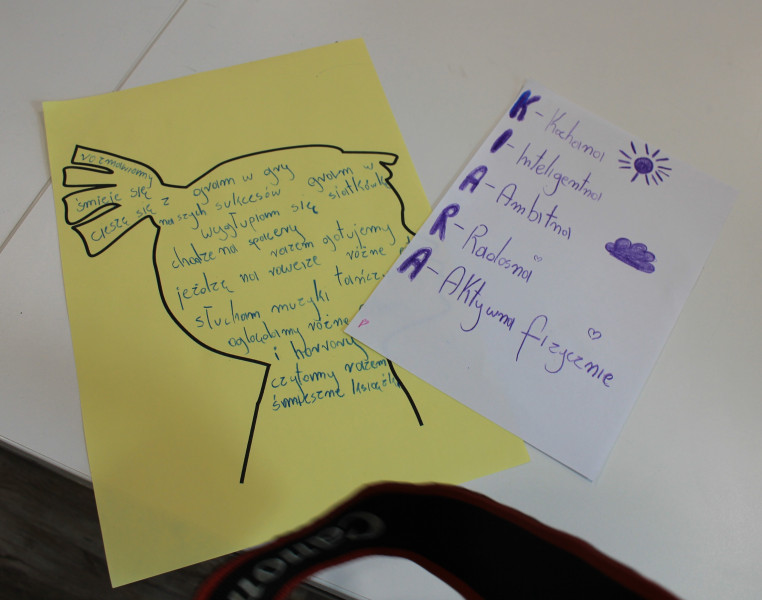 rozmawiamy
śmieję się
cieszę się z
naszych sukcesów
gram w gry
gram w
siatkówkę
wygłupiam się
chodzę na spacery
razem gotujemy
jeżdżę na rowerze różne
słucham muzyki
oglądamy różne
i horrory
czytamy razem
śmieszne książki
K - Kochana
I - Inteligentna
A - Ambitna
R - Radosna
A - Aktywna fizycznie
Canon